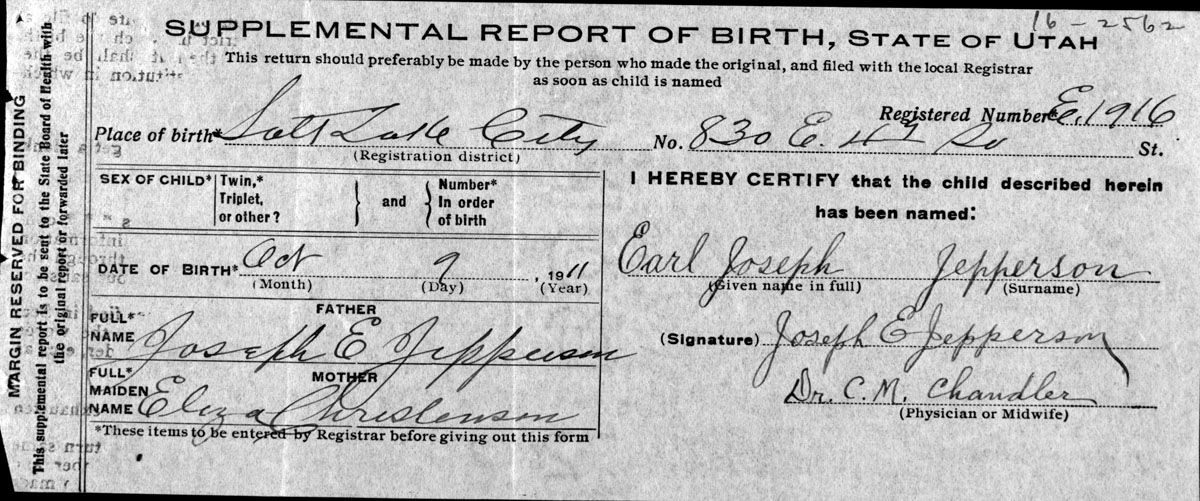 16-2562
SUPPLEMENTAL REPORT OF BIRTH, STATE OF UTAH
This return should preferably be made by the person who made the original, and filed with the local Registrar
as soon as child is named
Registered Number E.1916
Place of birth* Salt Lake City No. 830 E. 4th So St.
(Registration district)
SEX OF CHILD* Twin,* Triplet, or other? } and { Number* In order of birth
I HEREBY CERTIFY that the child described herein
has been named:
DATE OF BIRTH* Oct 9, 1911
(Month) (Day) (Year)
Earl Joseph Jepperson
(Given name in full) (Surname)
FATHER
FULL* NAME Joseph E Jepperson
(Signature) Joseph E Jepperson
MOTHER
FULL* MAIDEN NAME Eliza Christensen
Dr. C. M. Chandler
(Physician or Midwife)
*These items to be entered by Registrar before giving out this form
MARGIN RESERVED FOR BINDING
This supplemental report is to be sent to the State Board of Health with
the original report or forwarded later